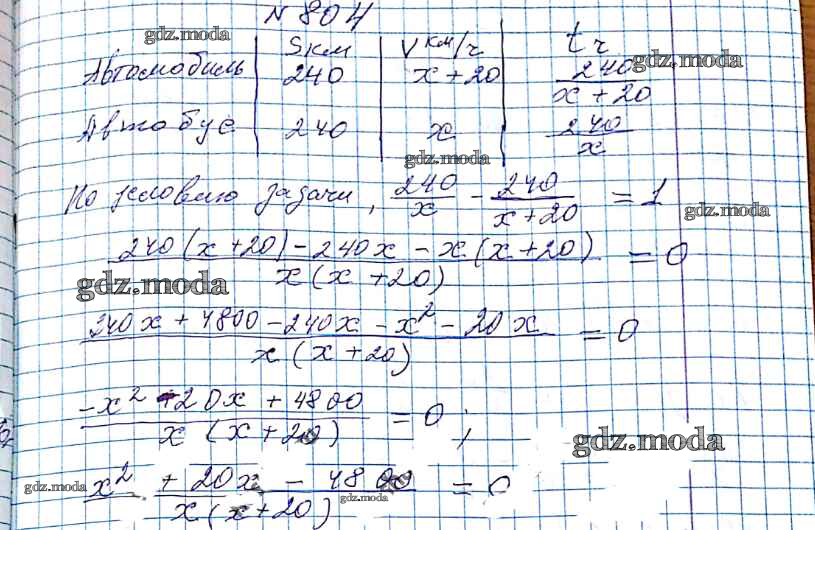 N 804
gdz.moda
S км | V км/ч | t ч
gdz.moda
Автомобиль | 240 | x + 20 | 240/(x + 20)
Автобус | 240 | x | 240/x
gdz.moda
По условию задачи, 240/x - 240/(x + 20) = 1
gdz.moda
(240(x + 20) - 240x - x(x + 20))/(x(x + 20)) = 0
gdz.moda
(240x + 4800 - 240x - x² - 20x)/(x(x + 20)) = 0
(-x² - 20x + 4800)/(x(x + 20)) = 0;
gdz.moda
(x² + 20x - 4800)/(x(x + 20)) = 0
gdz.moda
gdz.moda